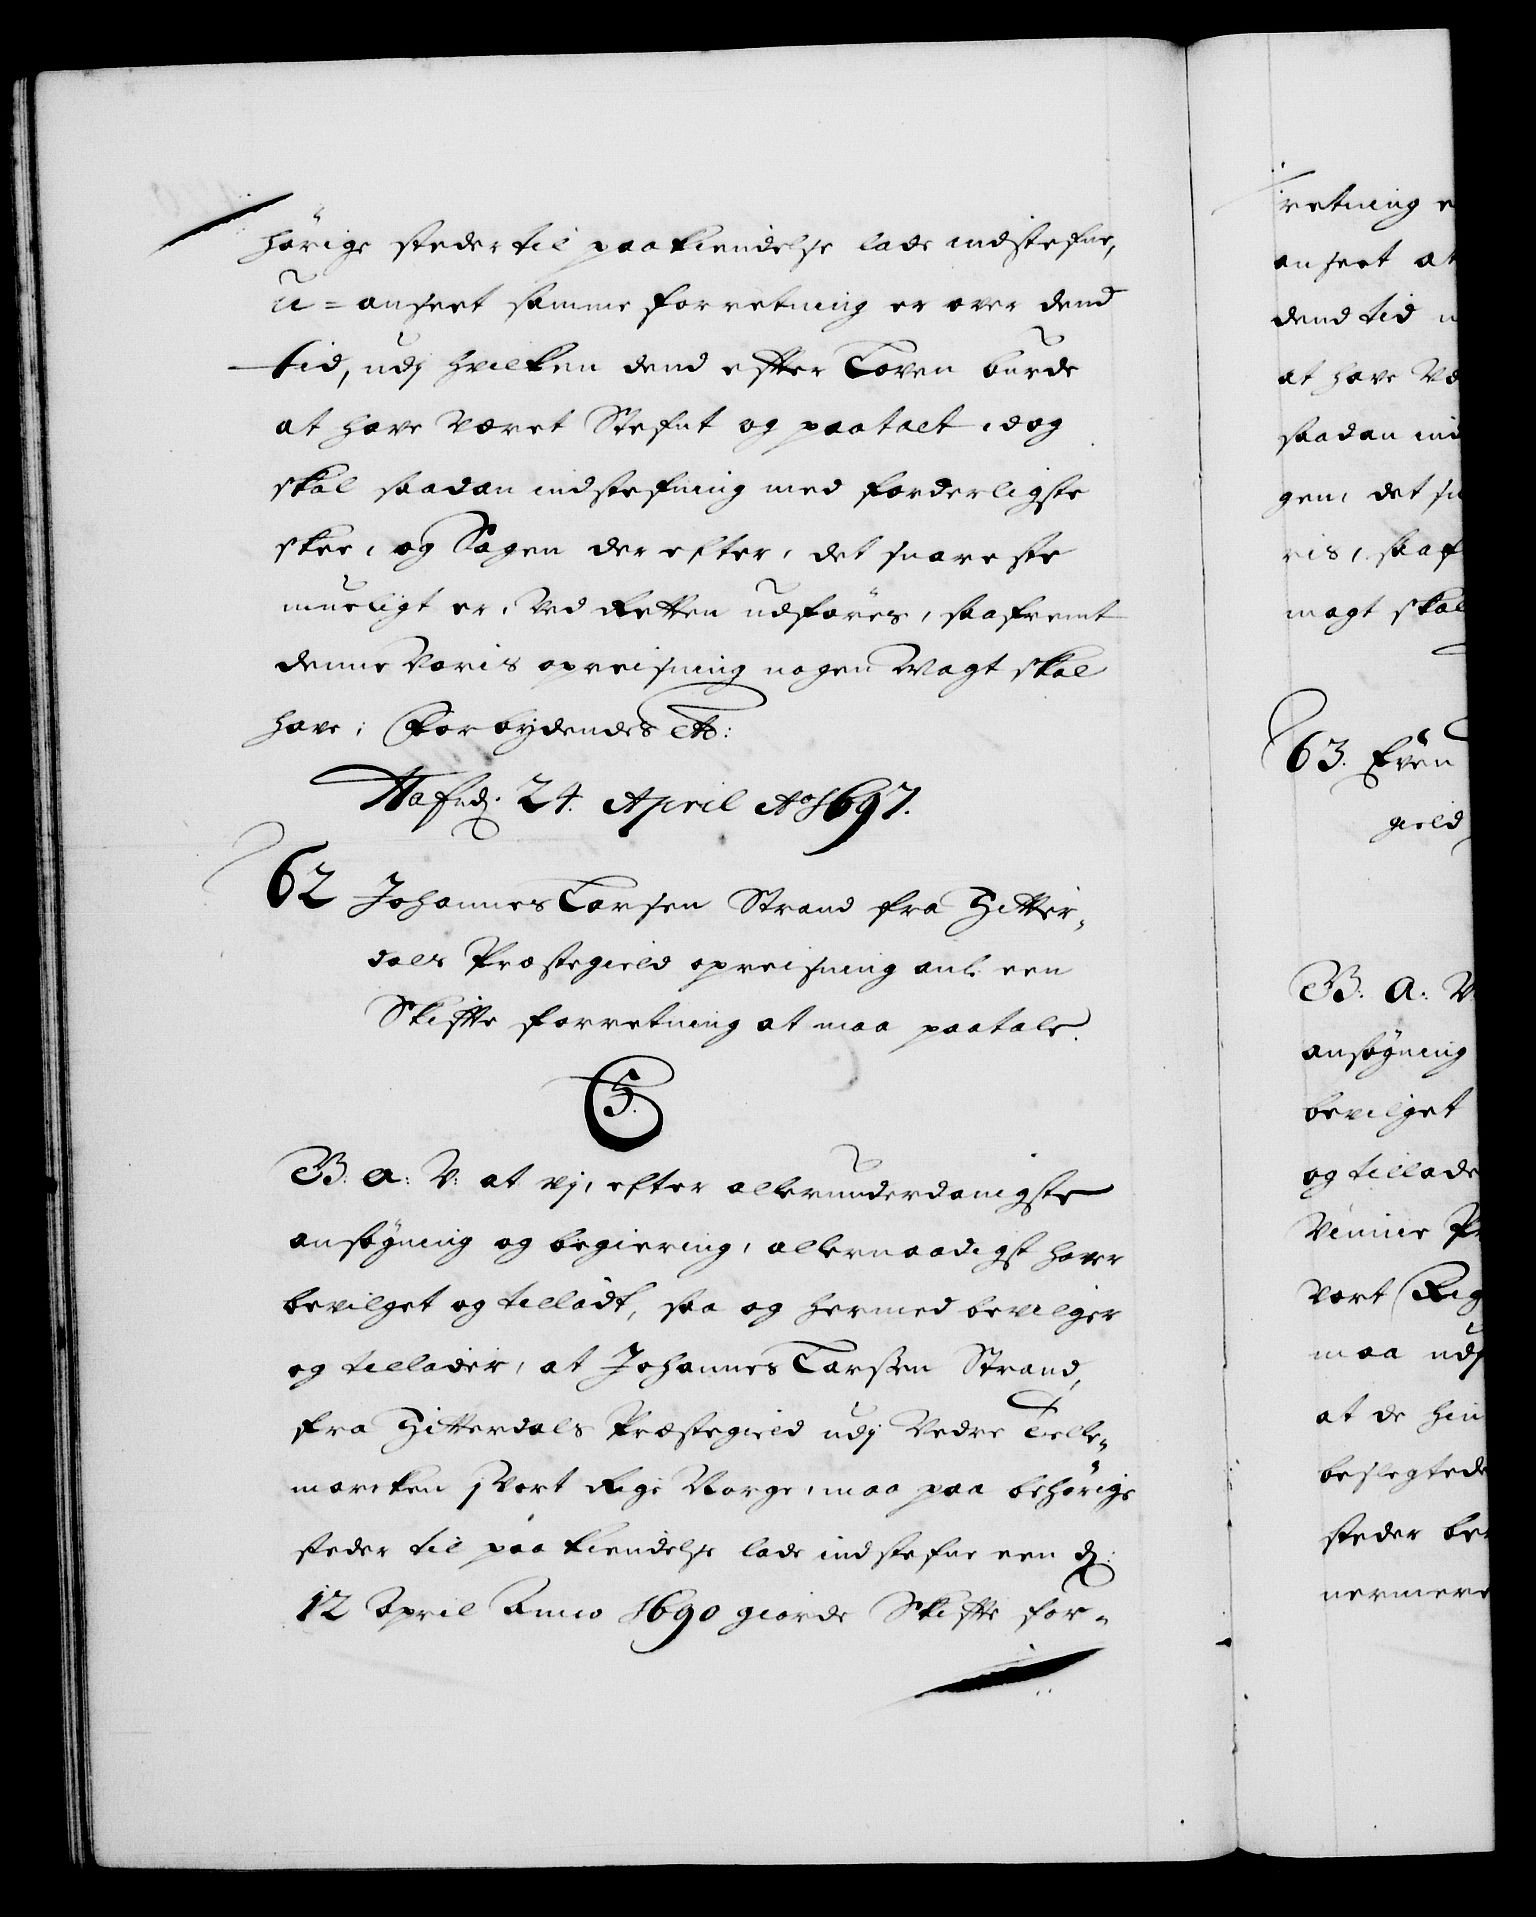 hörige steder til paakiendelse lade indstefne,
u=anseet samme forretning er over dend
tid, udj hvilken dend efter Loven burde
at have været Stefnt og paatalt, dog
skal saadan indstefning med forderligste
skee, og Sagen der efter, det snareste
mueligt er, ved Retten udföres, saafremt
denne Voris opreisning nogen Magt skal
have; Forbydendes etc:
Hafnd: 24. April Ao 1697.
62 Johannes Larsen Strand fra Hitter-
dals Præstegield opreisning anl. een
Skiffte forretning at maa paatale.
C5.
B: a: V: at vj, efter allerunderdanigste
ansögning og begiering, allernaadigst haver
bevilget og tilladt, saa og hermed bevilger
og tillader, at Johannes Larssen Strand,
fra Hitterdals Præstegield udj Nedre Telle-
marcken j Vort Rige Norge, maa paa behörige
steder til paakiendelse lade indstefne een dj:
12 April Anno 1690 giorde Skiffte for-
retning e
anseet at
dend tid u
at have Væ
saadan ind
gen, det sn
ris, saaf
magt skal
63. Even
gield
B: a: V:
ansögning
bevilget
og tillade
Vinnie Pr
Vort Rig
maa udj
at de hin
beslegtede
steder be
nermere